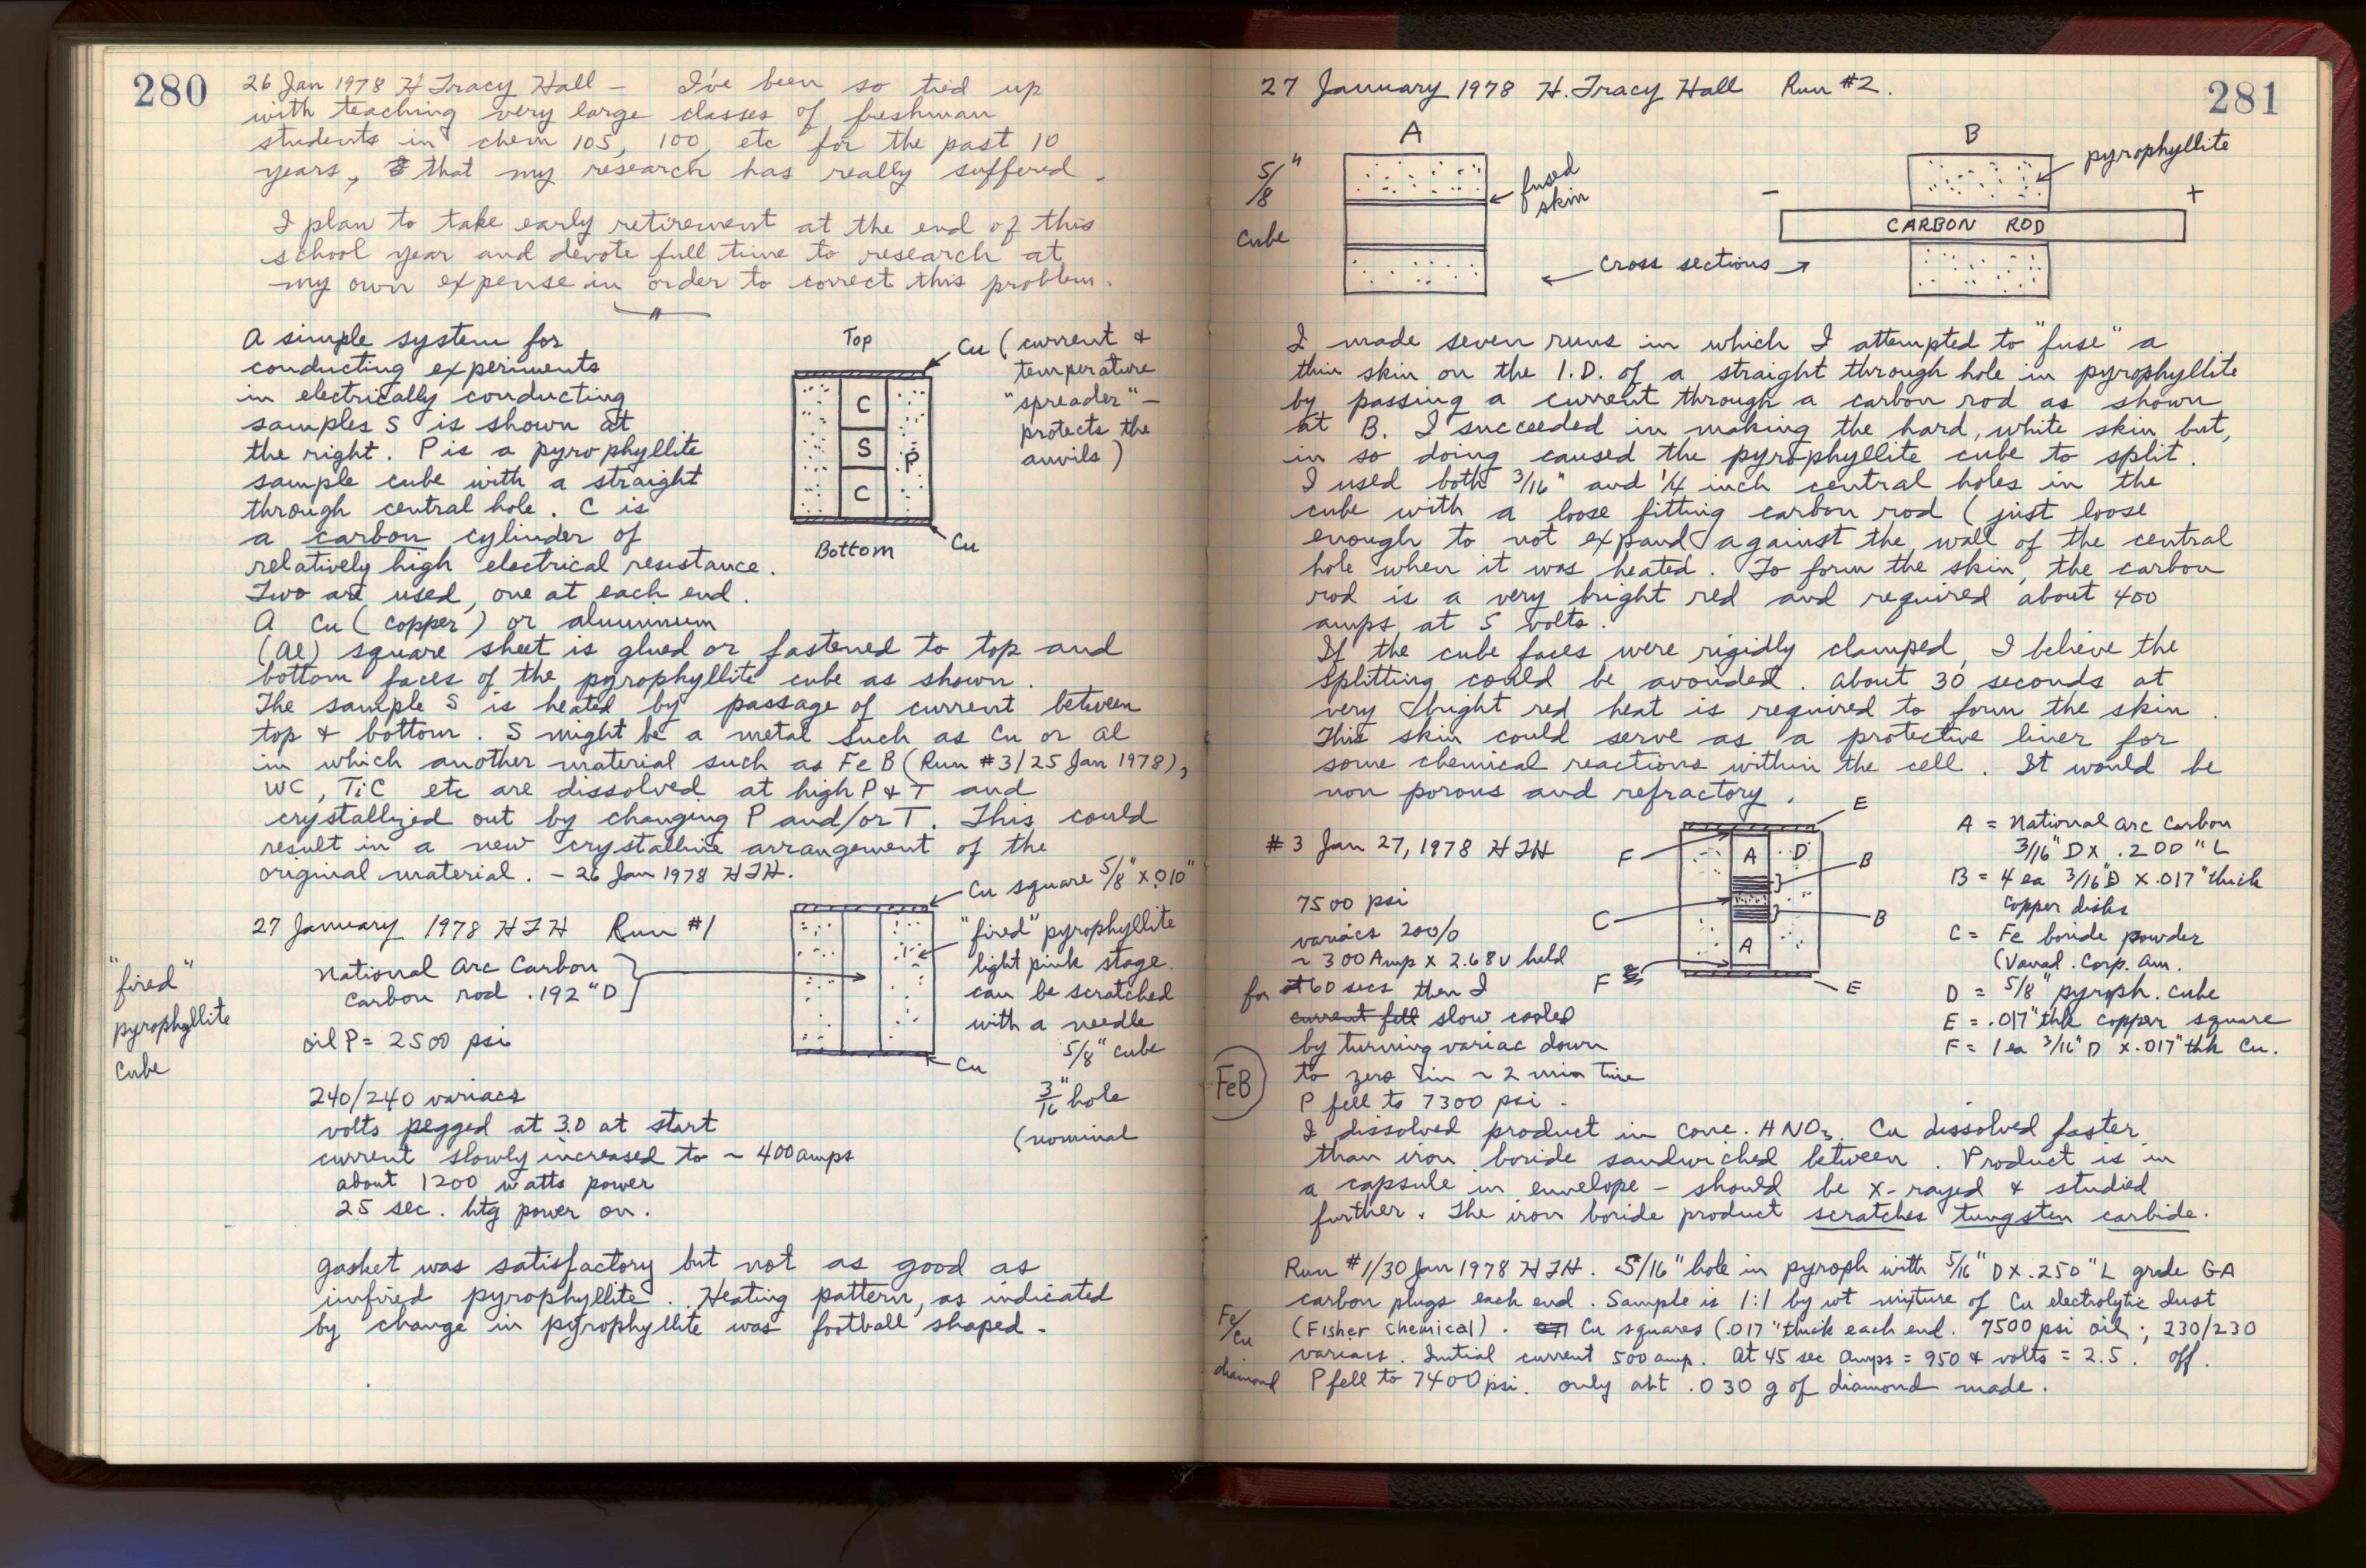 280
26 Jan 1978 H Tracy Hall – I've been so tied up
with teaching very large classes of freshman
students in chem 105, 100, etc for the past 10
years, that my research has really suffered.
I plan to take early retirement at the end of this
school year and devote full time to research at
my own expense in order to correct this problem.
A simple system for
conducting experiments
in electrically conducting
samples S is shown at
the right. P is a pyrophyllite
sample cube with a straight
through central hole. C is
a carbon cylinder of
relatively high electrical resistance.
Two are used, one at each end.
A Cu (copper) or aluminum
(Al) square sheet is glued or fastened to top and
bottom faces of the pyrophyllite cube as shown.
The sample S is heated by passage of current between
top & bottom. S might be a metal such as Cu or Al
in which another material such as FeB (Run #3/25 Jan 1978),
WC, TiC etc are dissolved at high P & T and
crystallized out by changing P and/or T. This could
result in a new crystalline arrangement of the
original material. – 26 Jan 1978 HTH.
Top
Cu (current &
temperature
"spreader" –
protects the
anvils)
C
S
P
C
Cu
Bottom
27 January 1978 HTH Run #1
Cu square 5/8" x .010"
National Arc Carbon
Carbon rod .192" D
"fired" pyrophyllite
light pink stage.
can be scratched
with a needle
5/8" cube
Cu
3/16" hole
(nominal
"fired"
pyrophyllite
cube
oil P = 2500 psi
240/240 variacs
volts pegged at 3.0 at start
current slowly increased to ~ 400 amps
about 1200 watts power
25 sec. htg power on.
gasket was satisfactory but not as good as
unfired pyrophyllite. Heating pattern, as indicated
by change in pyrophyllite was football shaped.
281
27 January 1978 H. Tracy Hall Run #2.
A
B
5/8"
cube
fused
skin
pyrophyllite
– +
CARBON ROD
cross sections
I made seven runs in which I attempted to "fuse" a
thin skin on the I.D. of a straight through hole in pyrophyllite
by passing a current through a carbon rod as shown
at B. I succeeded in making the hard, white skin but,
in so doing caused the pyrophyllite cube to split.
I used both 3/16" and 1/4 inch central holes in the
cube with a loose fitting carbon rod (just loose
enough to not expand against the wall of the central
hole when it was heated. To form the skin, the carbon
rod is a very bright red and required about 400
amps at 5 volts.
If the cube faces were rigidly clamped, I believe the
splitting could be avoided. About 30 seconds at
very bright red heat is required to form the skin.
This skin could serve as a protective liner for
some chemical reactions within the cell. It would be
non porous and refractory.
#3 Jan 27, 1978 HTH
7500 psi
variacs 200/0
~ 300 Amp x 2.68V held
for 60 secs then I
current fell slow cooled
by turning variac down
to zero in ~ 2 min time
P fell to 7300 psi.
FeB
E
F
A
D
B
C
B
A
F
E
A = National Arc Carbon
3/16" D x .200" L
B = 4 ea 3/16" D x .017" thick
Copper disks
C = Fe boride powder
(Vanad. Corp. Am.
D = 5/8" pyroph. cube
E = .017" thk copper square
F = 1 ea 3/16" D x .017" thk Cu.
I dissolved product in conc. HNO3. Cu dissolved faster
than iron boride sandwiched between. Product is in
a capsule in envelope – should be x-rayed & studied
further. The iron boride product scratches tungsten carbide.
Run #1/30 Jan 1978 HTH. 5/16" hole in pyroph with 5/16" D x .250" L grade GA
carbon plugs each end. Sample is 1:1 by wt mixture of Cu electrolytic dust
(Fisher Chemical). Cu squares (.017" thick each end. 7500 psi oil; 230/230
variacs. Initial current 500 amp. At 45 sec Amps = 950 & volts = 2.5. off.
P fell to 7400 psi. only abt .030 g of diamond made.
Fe/Cu
diamond